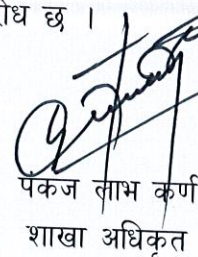 ोध छ ।
पंकज लाभ कर्ण
शाखा अधिकृत